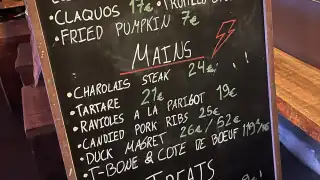 • CLAQUOS 17€
• FRIED PUMPKIN 7€
MAINS
• CHAROLAIS STEAK 24€ !!
• TARTARE 21€
• RAVIOLES A LA PARIGOT 19€
• CANDIED PORK RIBS 25€
• DUCK MAGRET 26€ / 52€
• T-BONE & COTE DE BOEUF